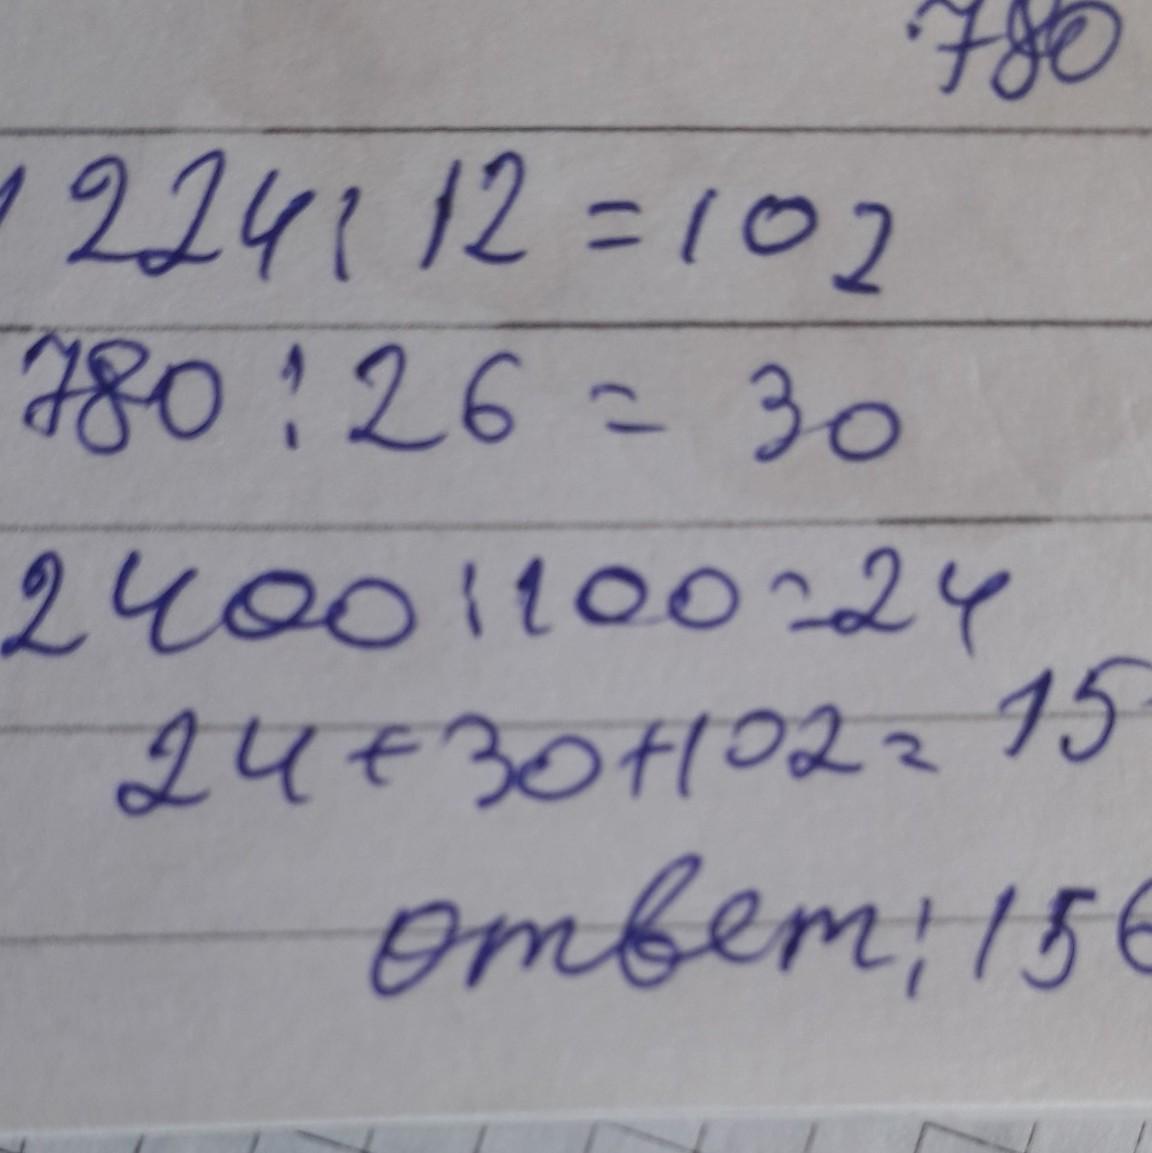 780
1224 : 12 = 102
780 : 26 = 30
2400 : 100 = 24
24 + 30 + 102 = 15
ответ: 156